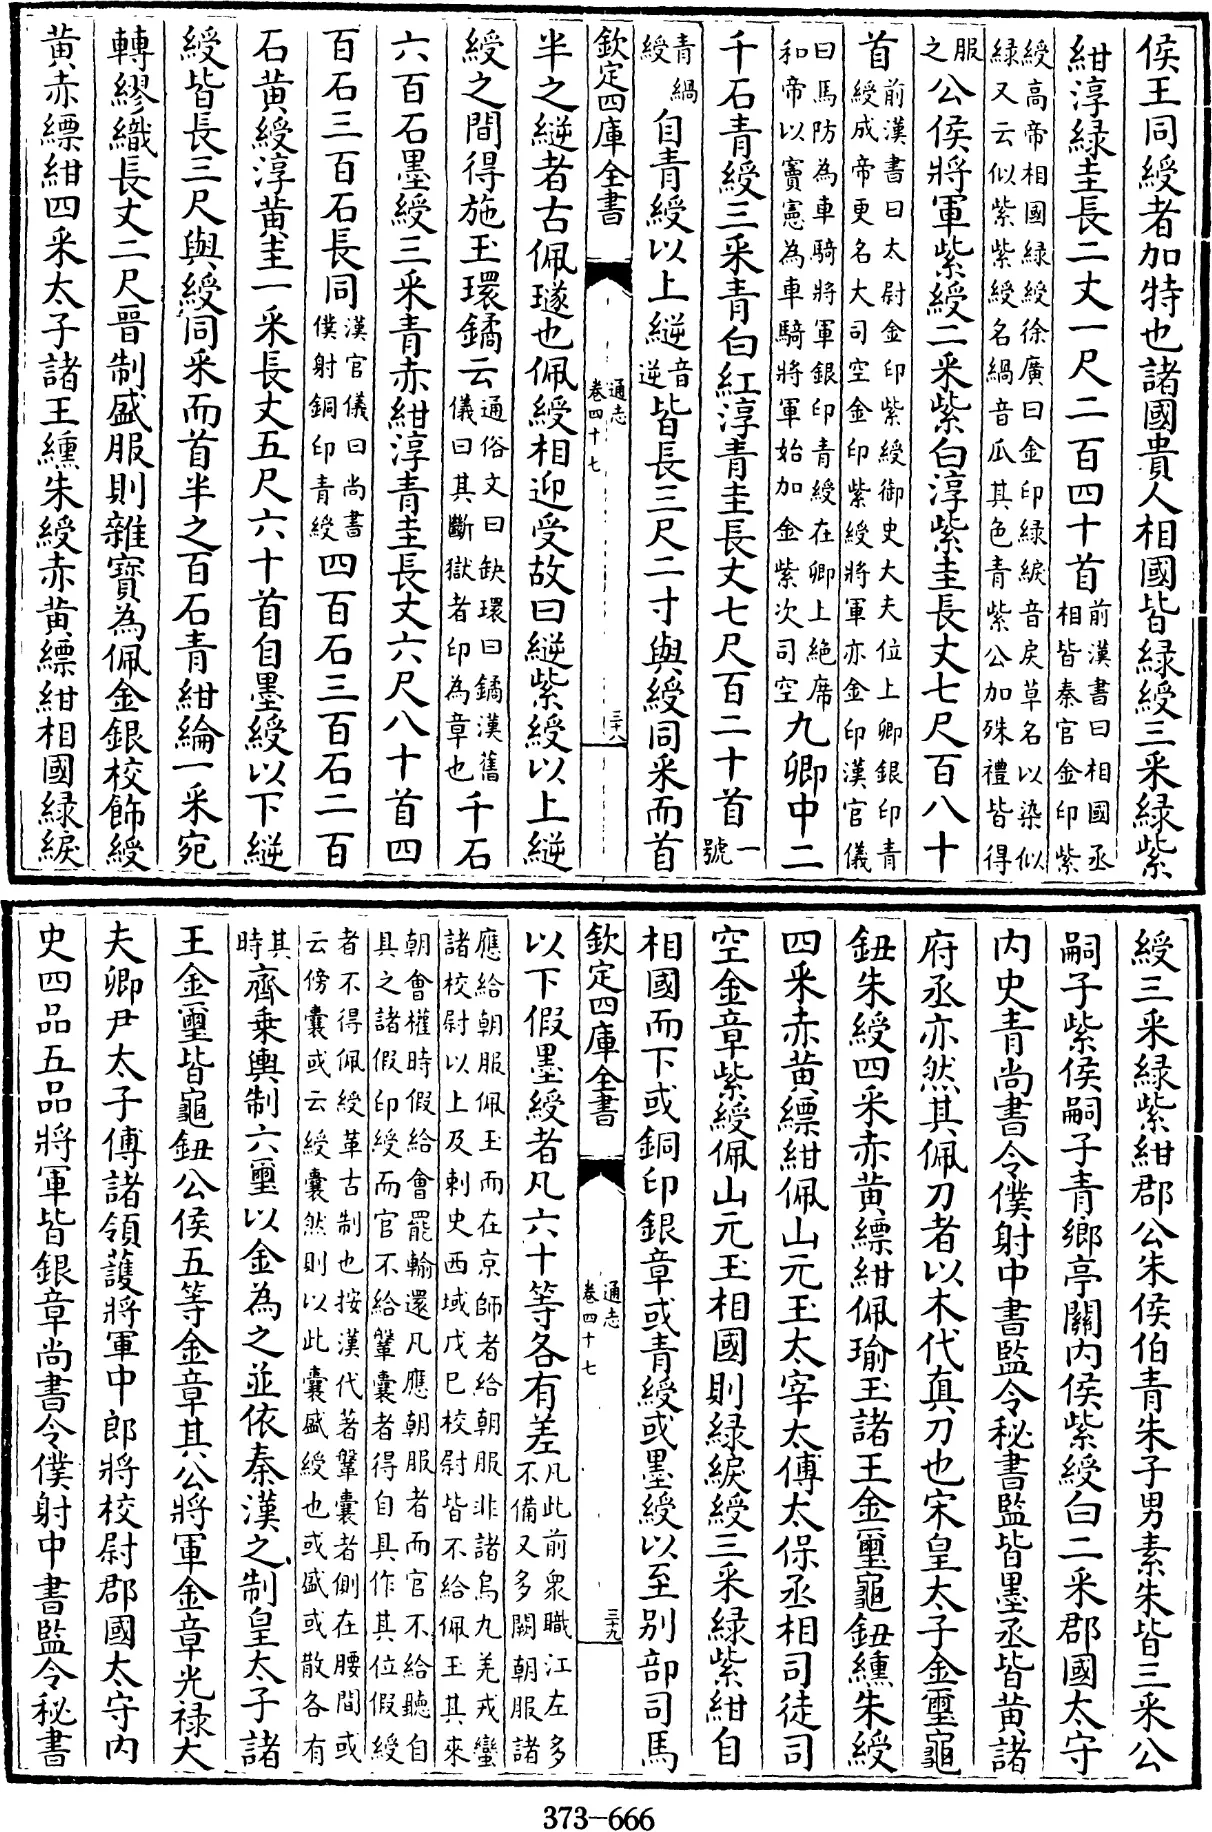 侯王同綬者加特也諸國貴人相國皆緑綬三采緑紫
紺淳緑圭長二丈一尺二百四十首前漢書曰相國丞相皆秦官金印紫
綬高帝相國緑綬徐廣曰金印緑綟音戾草名以染似
緑又云似紫紫綬名緺音瓜其色青紫公加殊禮皆得
服之公侯將軍紫綬二采紫白淳紫圭長丈七尺百八十
首前漢書曰太尉金印紫綬御史大夫位上卿銀印青綬成帝更名大司空金印紫綬將軍亦金印漢官儀
曰馬防為車騎將軍銀印青綬在卿上絶席和帝以竇憲為車騎將軍始加金紫次司空九卿中二
千石青綬三采青白紅淳青圭長丈七尺百二十首一號
青緺綬自青綬以上縌音逆皆長三尺二寸與綬同采而首
欽定四庫全書
通志
卷四十七
三十八
半之縌者古佩璲也佩綬相迎受故曰縌紫綬以上縌
綬之間得施玉環鐍云通俗文曰缺環曰鐍漢舊儀曰其斷獄者印為章也千石
六百石墨綬三采青赤紺淳青圭長丈六尺八十首四
百石三百石長同漢官儀曰尚書僕射銅印青綬四百石三百石二百
石黄綬淳黄圭一采長丈五尺六十首自墨綬以下縌
綬皆長三尺與綬同采而首半之百石青紺綸一采宛
轉繆織長丈二尺晉制盛服則雜寶為佩金銀校飾綬
黄赤縹紺四采太子諸王纁朱綬赤黄縹紺相國緑綟
綬三采緑紫紺郡公朱侯伯青朱子男素朱皆三采公
嗣子紫侯嗣子青鄉亭關内侯紫綬白二采郡國太守
内史青尚書令僕射中書監令秘書監皆墨丞皆黄諸
府丞亦然其佩刀者以木代真刀也宋皇太子金璽龜
鈕朱綬四采赤黄縹紺佩瑜玉諸王金璽龜鈕纁朱綬
四采赤黄縹紺佩山元玉太宰太傅太保丞相司徒司
空金章紫綬佩山元玉相國則緑綟綬三采緑紫紺自
相國而下或銅印銀章或青綬或墨綬以至別部司馬
欽定四庫全書
通志
卷四十七
三十九
以下假墨綬者凡六十等各有差凡此前衆職江左多不備又多闕朝服諸
應給朝服佩玉而在京師者給朝服非諸烏丸羌戎蠻
諸校尉以上及刺史西域戊巳校尉皆不給佩玉其來
朝會權時假給會罷輸還凡應朝服者而官不給聽自
具之諸假印綬而官不給鞶囊者得自具作其位假綬
者不得佩綬革古制也按漢代著鞶囊者側在腰間或
云傍囊或云綬囊然則以此囊盛綬也或盛或散各有
其時齊乗輿制六璽以金為之並依秦漢之制皇太子諸
王金璽皆龜鈕公侯五等金章其公將軍金章光禄大
夫卿尹太子傅諸領護將軍中郎將校尉郡國太守内
史四品五品將軍皆銀章尚書令僕射中書監令秘書
373-666